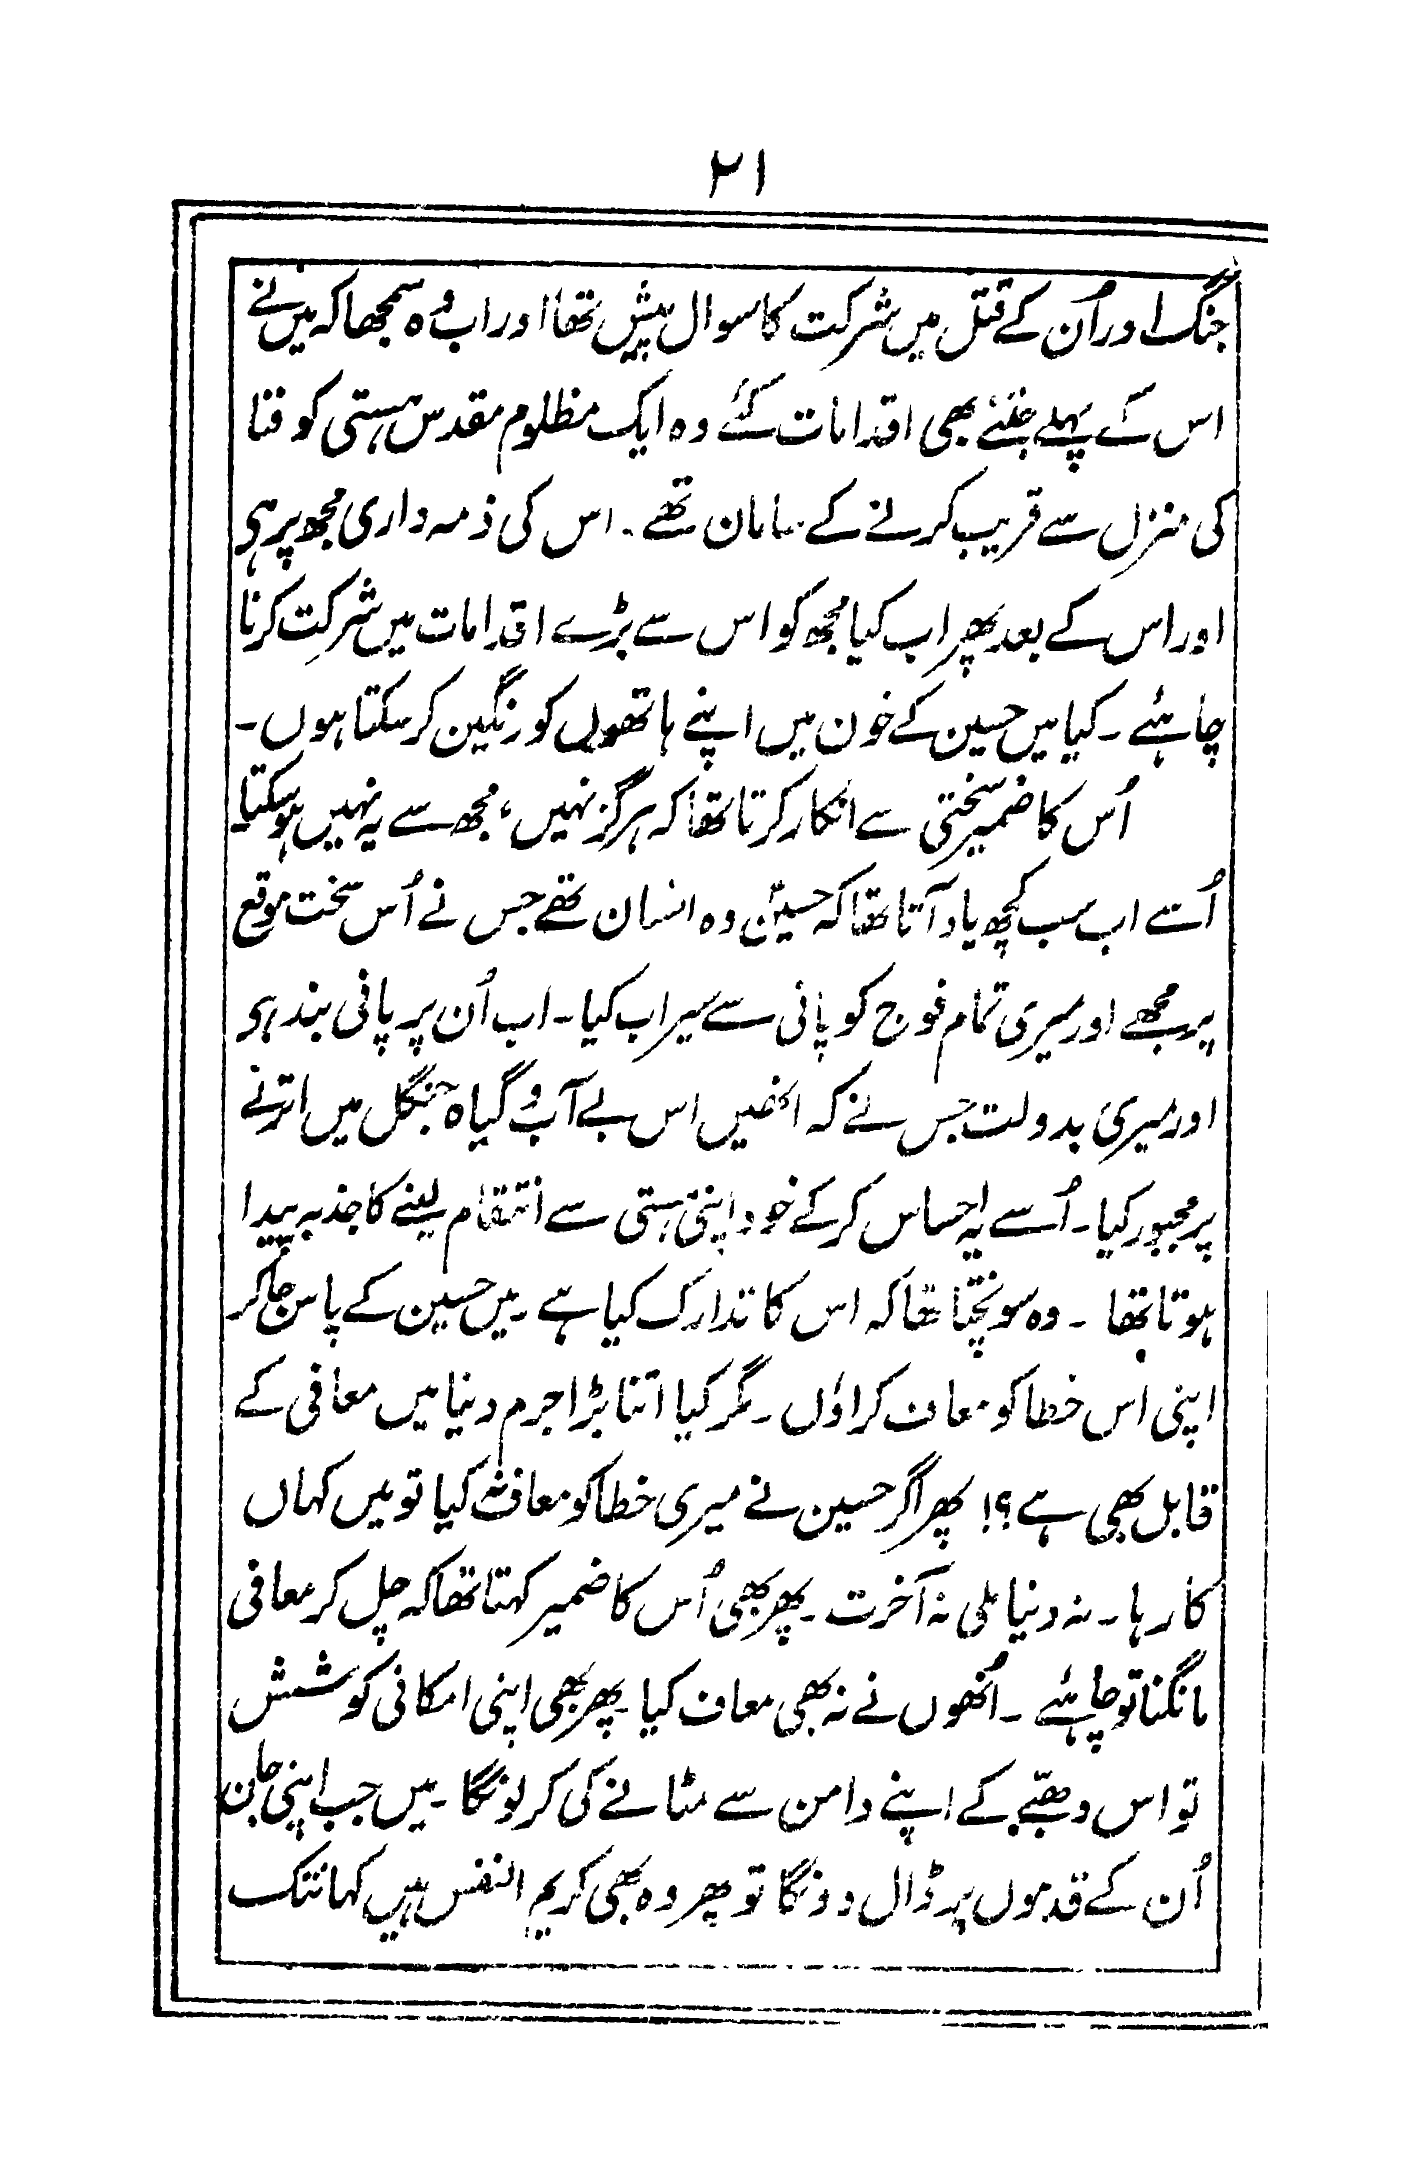 ۲۱
جنگ اور اُن کے قتل میں شرکت کا سوال پیش تھا اور اب وُہ سمجھا کہ میں نے
اس کے پہلے جتنے بھی اقدامات کئے وہ ایک مظلوم مقدس ہستی کو فنا
کی منزل سے قریب کرنے کے سامان تھے۔ اس کی ذمہ داری مجھ پر ہی
اور اس کے بعد پھر اب کیا مجھ کو اس سے بڑے اقدامات میں شرکت کرنا
چاہئے۔ کیا میں حسین کے خون میں اپنے ہاتھوں کو رنگین کر سکتا ہوں۔
اُس کا ضمیر سختی سے انکار کرتا تھا کہ ہرگز نہیں، مجھ سے یہ نہیں ہو سکتا۔
اُسے اب سب کچھ یاد آتا تھا کہ حسینؑ وہ انسان تھے جس نے اُس سخت موقع
پر مجھے اور میری تمام فوج کو پانی سے سیراب کیا۔ اب اُن پر پانی بند ہو
اور میری بدولت جس نے کہ انھیں اس بے آب وُ گیاہ جنگل میں اترنے
پر مجبور کیا۔ اُسے یہ احساس کر کے خود اپنی ہستی سے انتقام لینے کا جذبہ پیدا
ہوتا تھا۔ وہ سونچتا تھا کہ اس کا تدارک کیا ہے۔ میں حسین کے پاس جا کر
اپنی اس خطا کو معاف کراؤں۔ مگر کیا اتنا بڑا جرم دنیا میں معافی کے
قابل بھی ہے؟! پھر اگر حسین نے میری خطا کو معاف نہ کیا تو میں کہاں
کا رہا۔ نہ دنیا ملی نہ آخرت۔ پھر بھی اُس کا ضمیر کہتا تھا کہ چل کر معافی
مانگنا تو چاہئے۔ اُنھوں نے نہ بھی معاف کیا۔ پھر بھی اپنی امکانی کوشش
تو اس دھبّے کے اپنے دامن سے مٹانے کی کر لونگا۔ میں جب اپنی جان
اُن کے قدموں پر ڈال دونگا تو پھر وہ بھی کریم النفس ہیں کہانتک